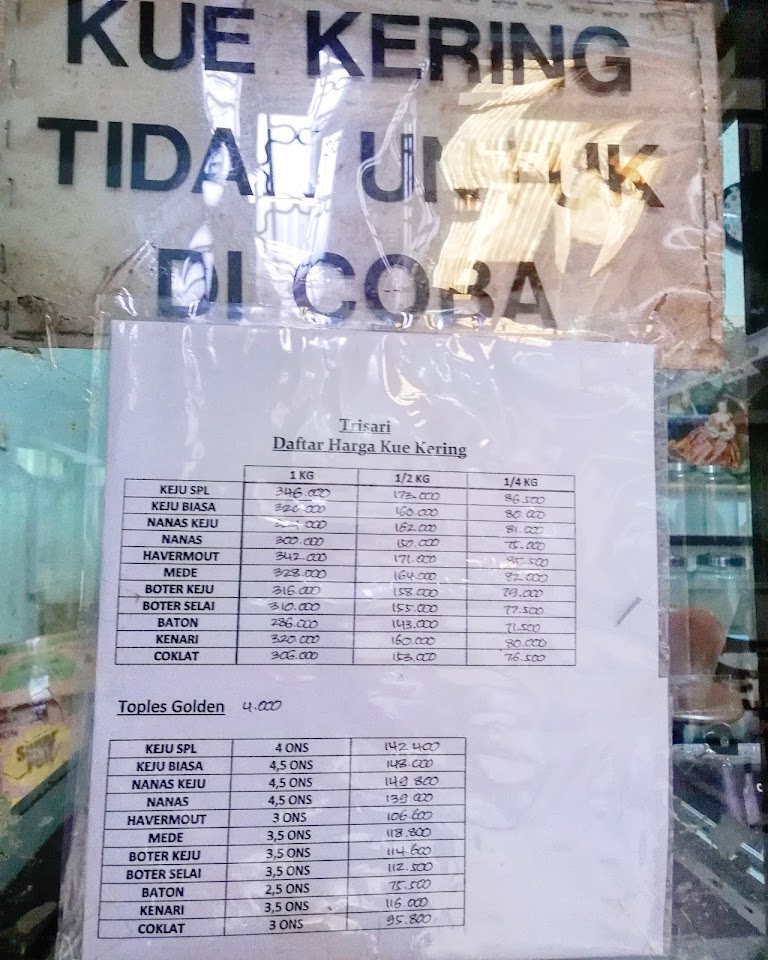 KUE KERING
TIDAK UNTUK
DI COBA
Trisari
Daftar Harga Kue Kering
1 KG 1/2 KG 1/4 KG
KEJU SPL 346.000 173.000 86.500
KEJU BIASA 320.000 160.000 80.000
NANAS KEJU 162.000 81.000
NANAS 300.000 150.000 75.000
HAVERMOUT 342.000 171.000 85.500
MEDE 328.000 164.000 82.000
BOTER KEJU 316.000 158.000 79.000
BOTER SELAI 310.000 155.000 77.500
BATON 286.000 143.000 71.500
KENARI 320.000 160.000 80.000
COKLAT 306.000 153.000 76.500
Toples Golden 4.000
KEJU SPL 4 ONS 142.400
KEJU BIASA 4,5 ONS 148.000
NANAS KEJU 4,5 ONS 149.800
NANAS 4,5 ONS 139.000
HAVERMOUT 3 ONS 106.600
MEDE 3,5 ONS 118.800
BOTER KEJU 3,5 ONS 114.600
BOTER SELAI 3,5 ONS 112.500
BATON 2,5 ONS 75.500
KENARI 3,5 ONS 116.000
COKLAT 3 ONS 95.800